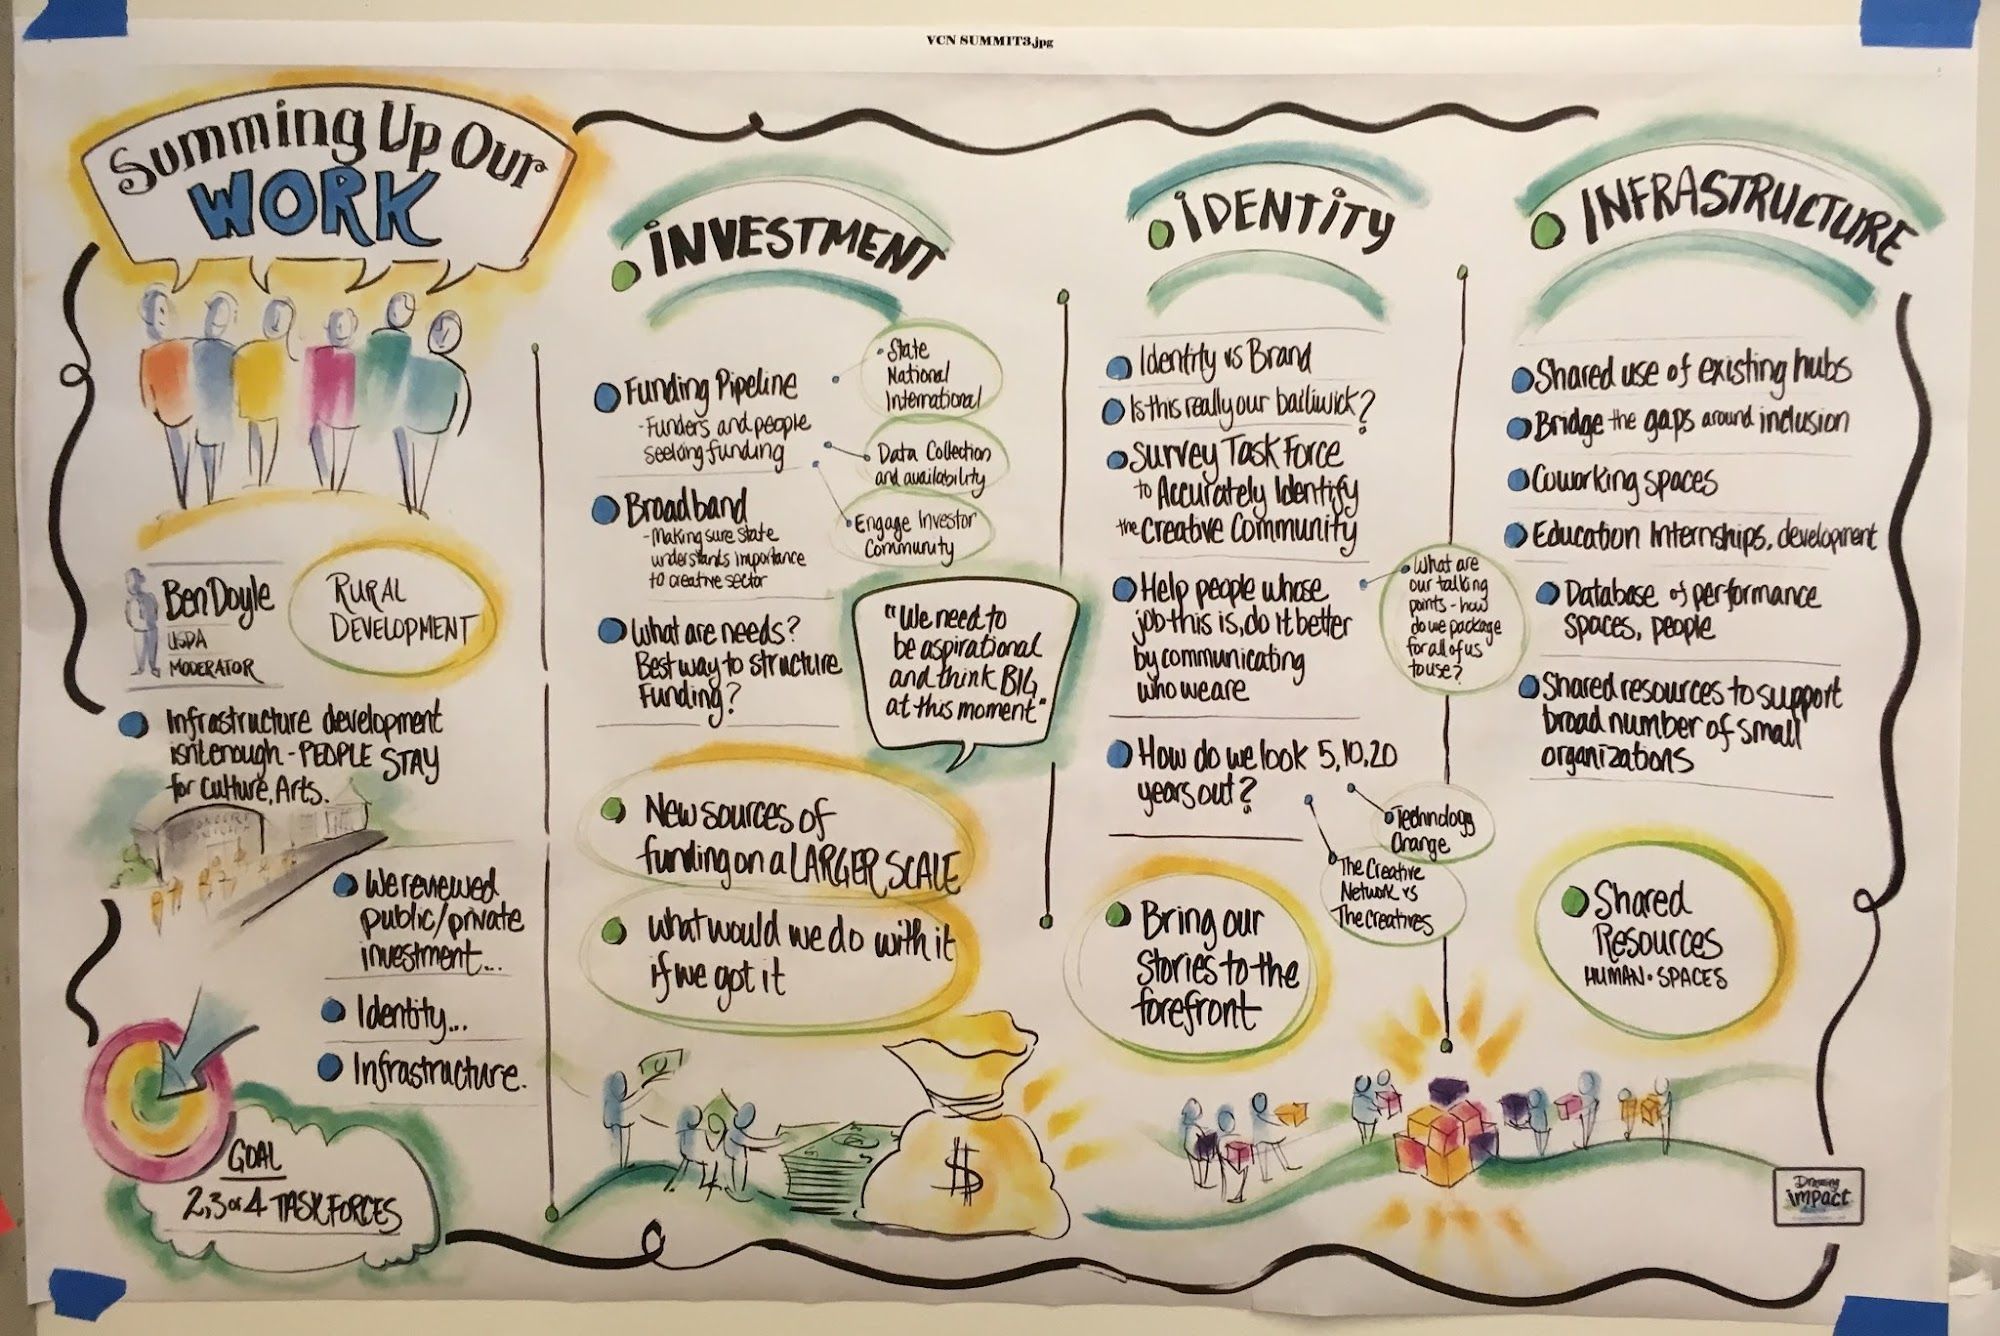 VCN SUMMIT3.jpg
Summing Up Our
WORK
Ben Doyle
USDA
MODERATOR
RURAL
DEVELOPMENT
Infrastructure development
isn't enough - PEOPLE STAY
for Culture, Arts.
We reviewed
public/private
investment...
Identity...
Infrastructure.
GOAL
2, 3 or 4 TASK FORCES
INVESTMENT
Funding Pipeline
- Funders and people
seeking funding
State
National
International
Data Collection
and availability
Engage Investor
Community
Broadband
- Making sure State
understands importance
to creative sector
What are needs?
Best way to structure
Funding?
"We need to
be aspirational
and think BIG
at this moment"
New sources of
funding on a LARGER SCALE
What would we do with it
if we got it
$
IDENTITY
Identity vs Brand
Is this really our bailiwick?
Survey Task Force
to Accurately Identify
the Creative Community
Help people whose
job this is, do it better
by communicating
who we are
What are
our talking
points - how
do we package
for all of us
to use?
How do we look 5, 10, 20
years out?
Technology
Change
The Creative
Network vs
The Creatives
Bring our
Stories to the
forefront
INFRASTRUCTURE
Shared use of existing hubs
Bridge the gaps around inclusion
Coworking spaces
Education Internships, development
Database of performance
spaces, people
Shared resources to support
broad number of small
organizations
Shared
Resources
HUMAN • SPACES
Drawing
impact